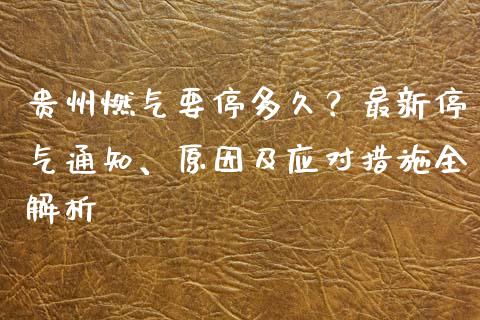 贵州燃气要停多久？最新停
气通知、原因及应对措施全
解析